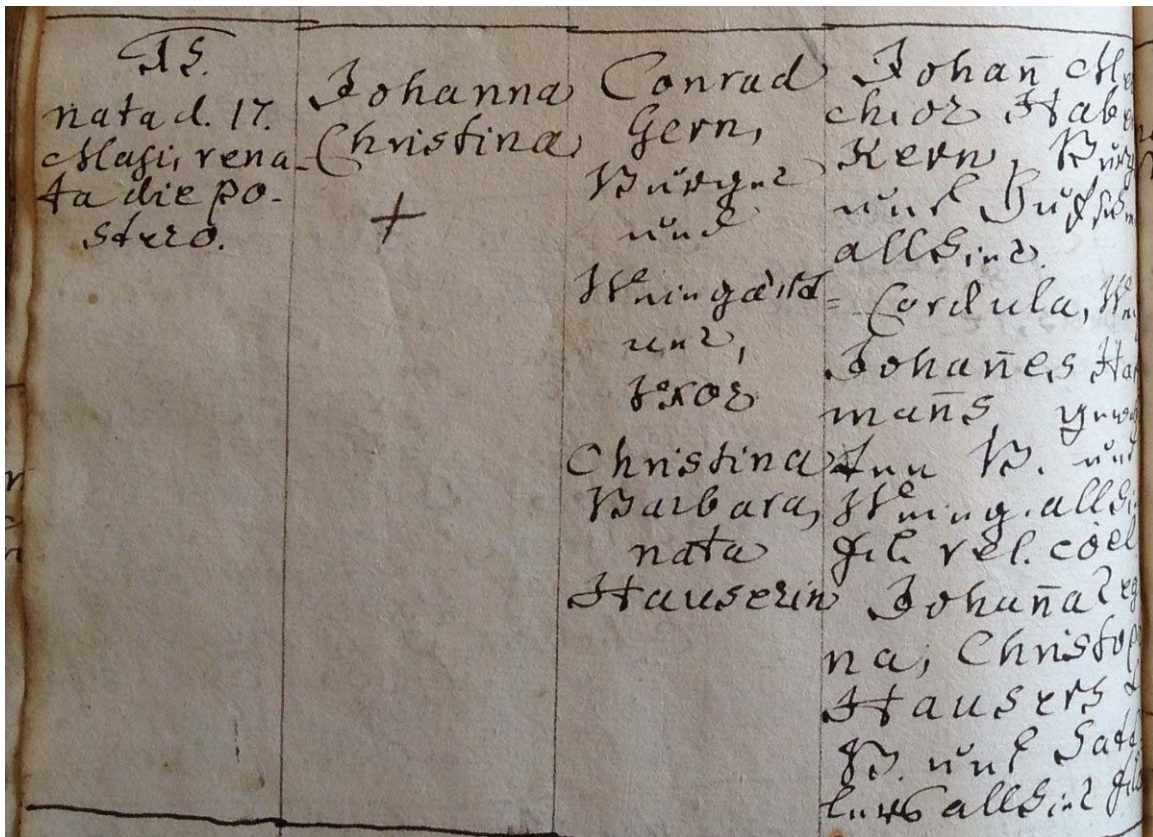 15.
nata d. 17.
Maji, rena-
ta die po-
stero.
Johanna
Christina
+
Conrad
Gern,
Burger
und
Weingärtt-
ner,
Uxor
Christina
Barbara,
nata
Hauserin
Johan̄ Mel
chior Haber
Kern, Burg
und Hufschm
allhier.
Cordula, We
Johan̄es Har
man̄s gewes
B. und
Weing. allhi
fil. rel. coel
Johan̄a Reg
na, Christop
Hausers
B. und Satt
lers allhier fil